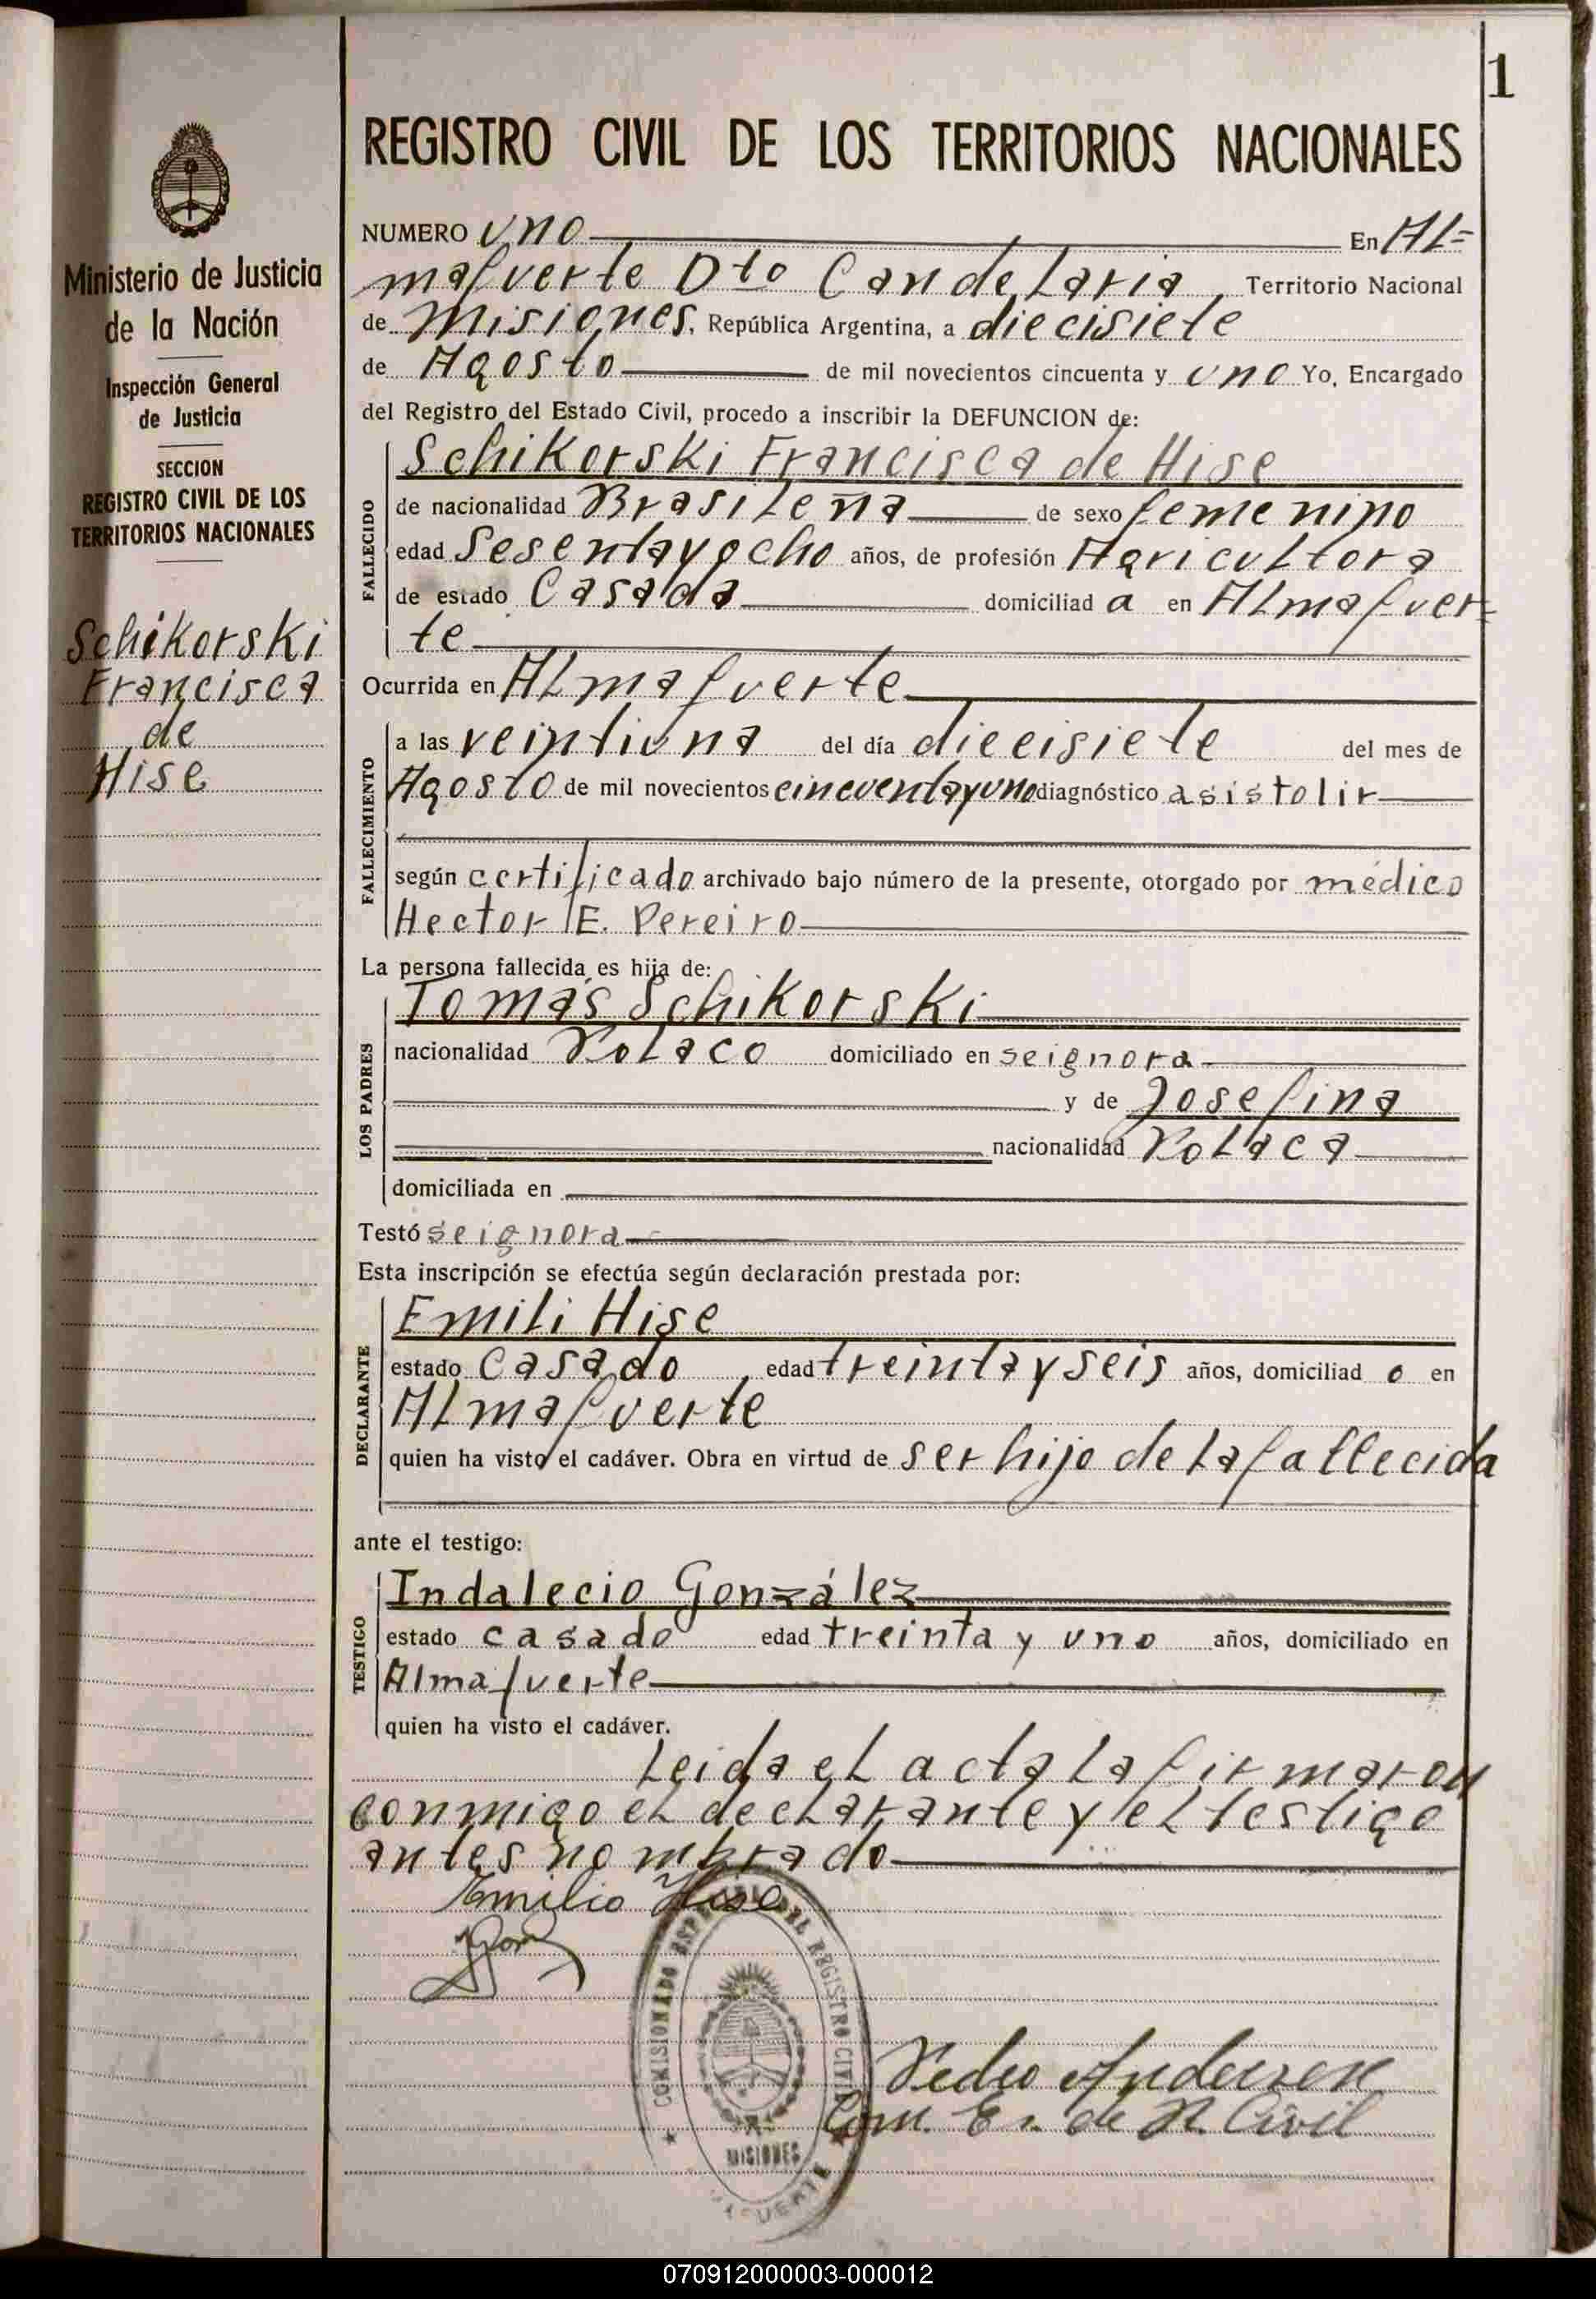 1
REGISTRO CIVIL DE LOS TERRITORIOS NACIONALES
Ministerio de Justicia
de la Nación
Inspección General
de Justicia
SECCION
REGISTRO CIVIL DE LOS
TERRITORIOS NACIONALES
Schikorski
Francisca
de
Hise
NUMERO uno En Al=
mafuerte Dto Candelaria Territorio Nacional
de Misiones, República Argentina, a diecisiete
de Agosto de mil novecientos cincuenta y uno Yo, Encargado
del Registro del Estado Civil, procedo a inscribir la DEFUNCION de:
FALLECIDO
Schikorski Francisca de Hise
de nacionalidad Brasileña de sexo femenino
edad Sesentayocho años, de profesión Agricultora
de estado Casada domiciliad a en Almafuer=
te
Ocurrida en Almafuerte
FALLECIMIENTO
a las veintiuna del día diecisiete del mes de
Agosto de mil novecientos cincuentayuno diagnóstico asistolir
según certificado archivado bajo número de la presente, otorgado por médico
Hector E. Pereiro
La persona fallecida es hija de:
LOS PADRES
Tomás Schikorski
nacionalidad Polaco domiciliado en seignora
y de Josefina
nacionalidad Polaca
domiciliada en
Testó seignora
Esta inscripción se efectúa según declaración prestada por:
DECLARANTE
Emili Hise
estado Casado edad treintayseis años, domiciliad o en
Almafuerte
quien ha visto el cadáver. Obra en virtud de ser hijo de la fallecida
ante el testigo:
TESTIGO
Indalecio González
estado casado edad treinta y uno años, domiciliado en
Almafuerte
quien ha visto el cadáver.
Leida el acta la firmaron
conmigo el declarante y el testigo
antes nombrado
Emilio Hise
COMISIONADO DEL REGISTRO CIVIL
MISIONES
Pedro Andersen
Com. Es. de R. Civil
070912000003-000012